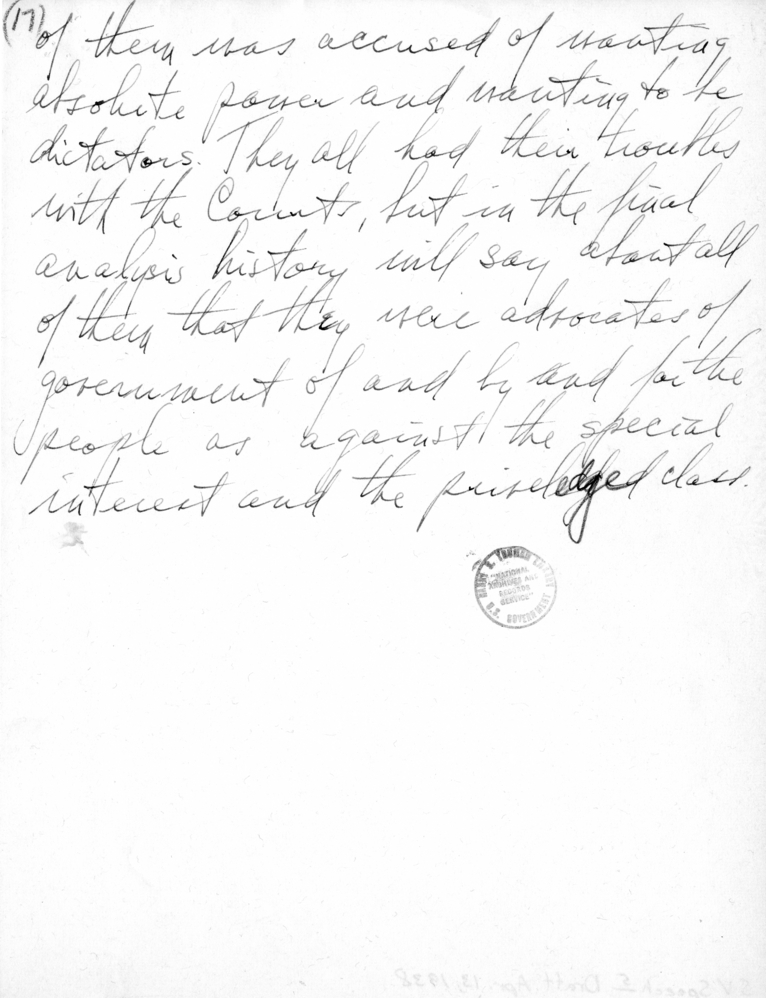 (17)
of them was accused of wanting
absolute power and wanting to be
dictators. They all had their troubles
with the Courts, but in the final
analysis history will say about all
of them that they were advocates of
government of and by and for the
people as against the special
interest and the priveledged class.
HARRY S. TRUMAN LIBRARY
"NATIONAL
ARCHIVES AND
RECORDS
SERVICE"
U.S. GOVERNMENT
SV Speech Draft Apr. 13, 1938